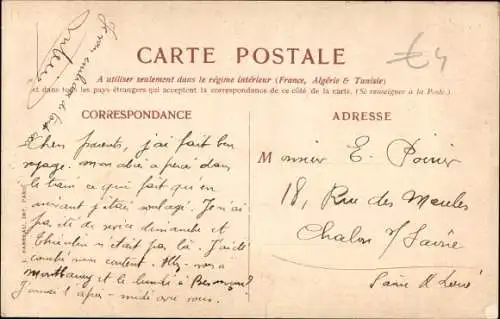 Je vous embrasse
£4
CARTE POSTALE
A utiliser seulement dans le régime intérieur (France, Algérie & Tunisie)
et dans tous les pays étrangers qui acceptent la correspondance de ce côté de la carte. (Se renseigner à la Poste.)
CORRESPONDANCE
Chers parents, j'ai fait bon
voyage. mon abcè a percé dans
le train ce qui fait qu'en
arrivant j'étais soulagé. Je n'ai
pas été de service dimanche et
n'était pas là. J'ai été
content. à
et le lundi à
J'aurai l'après-midi avec vous.
ADRESSE
Monsieur E. Poirier
18, Rue des Meules
Chalon s/ Saône
Saône & Loire